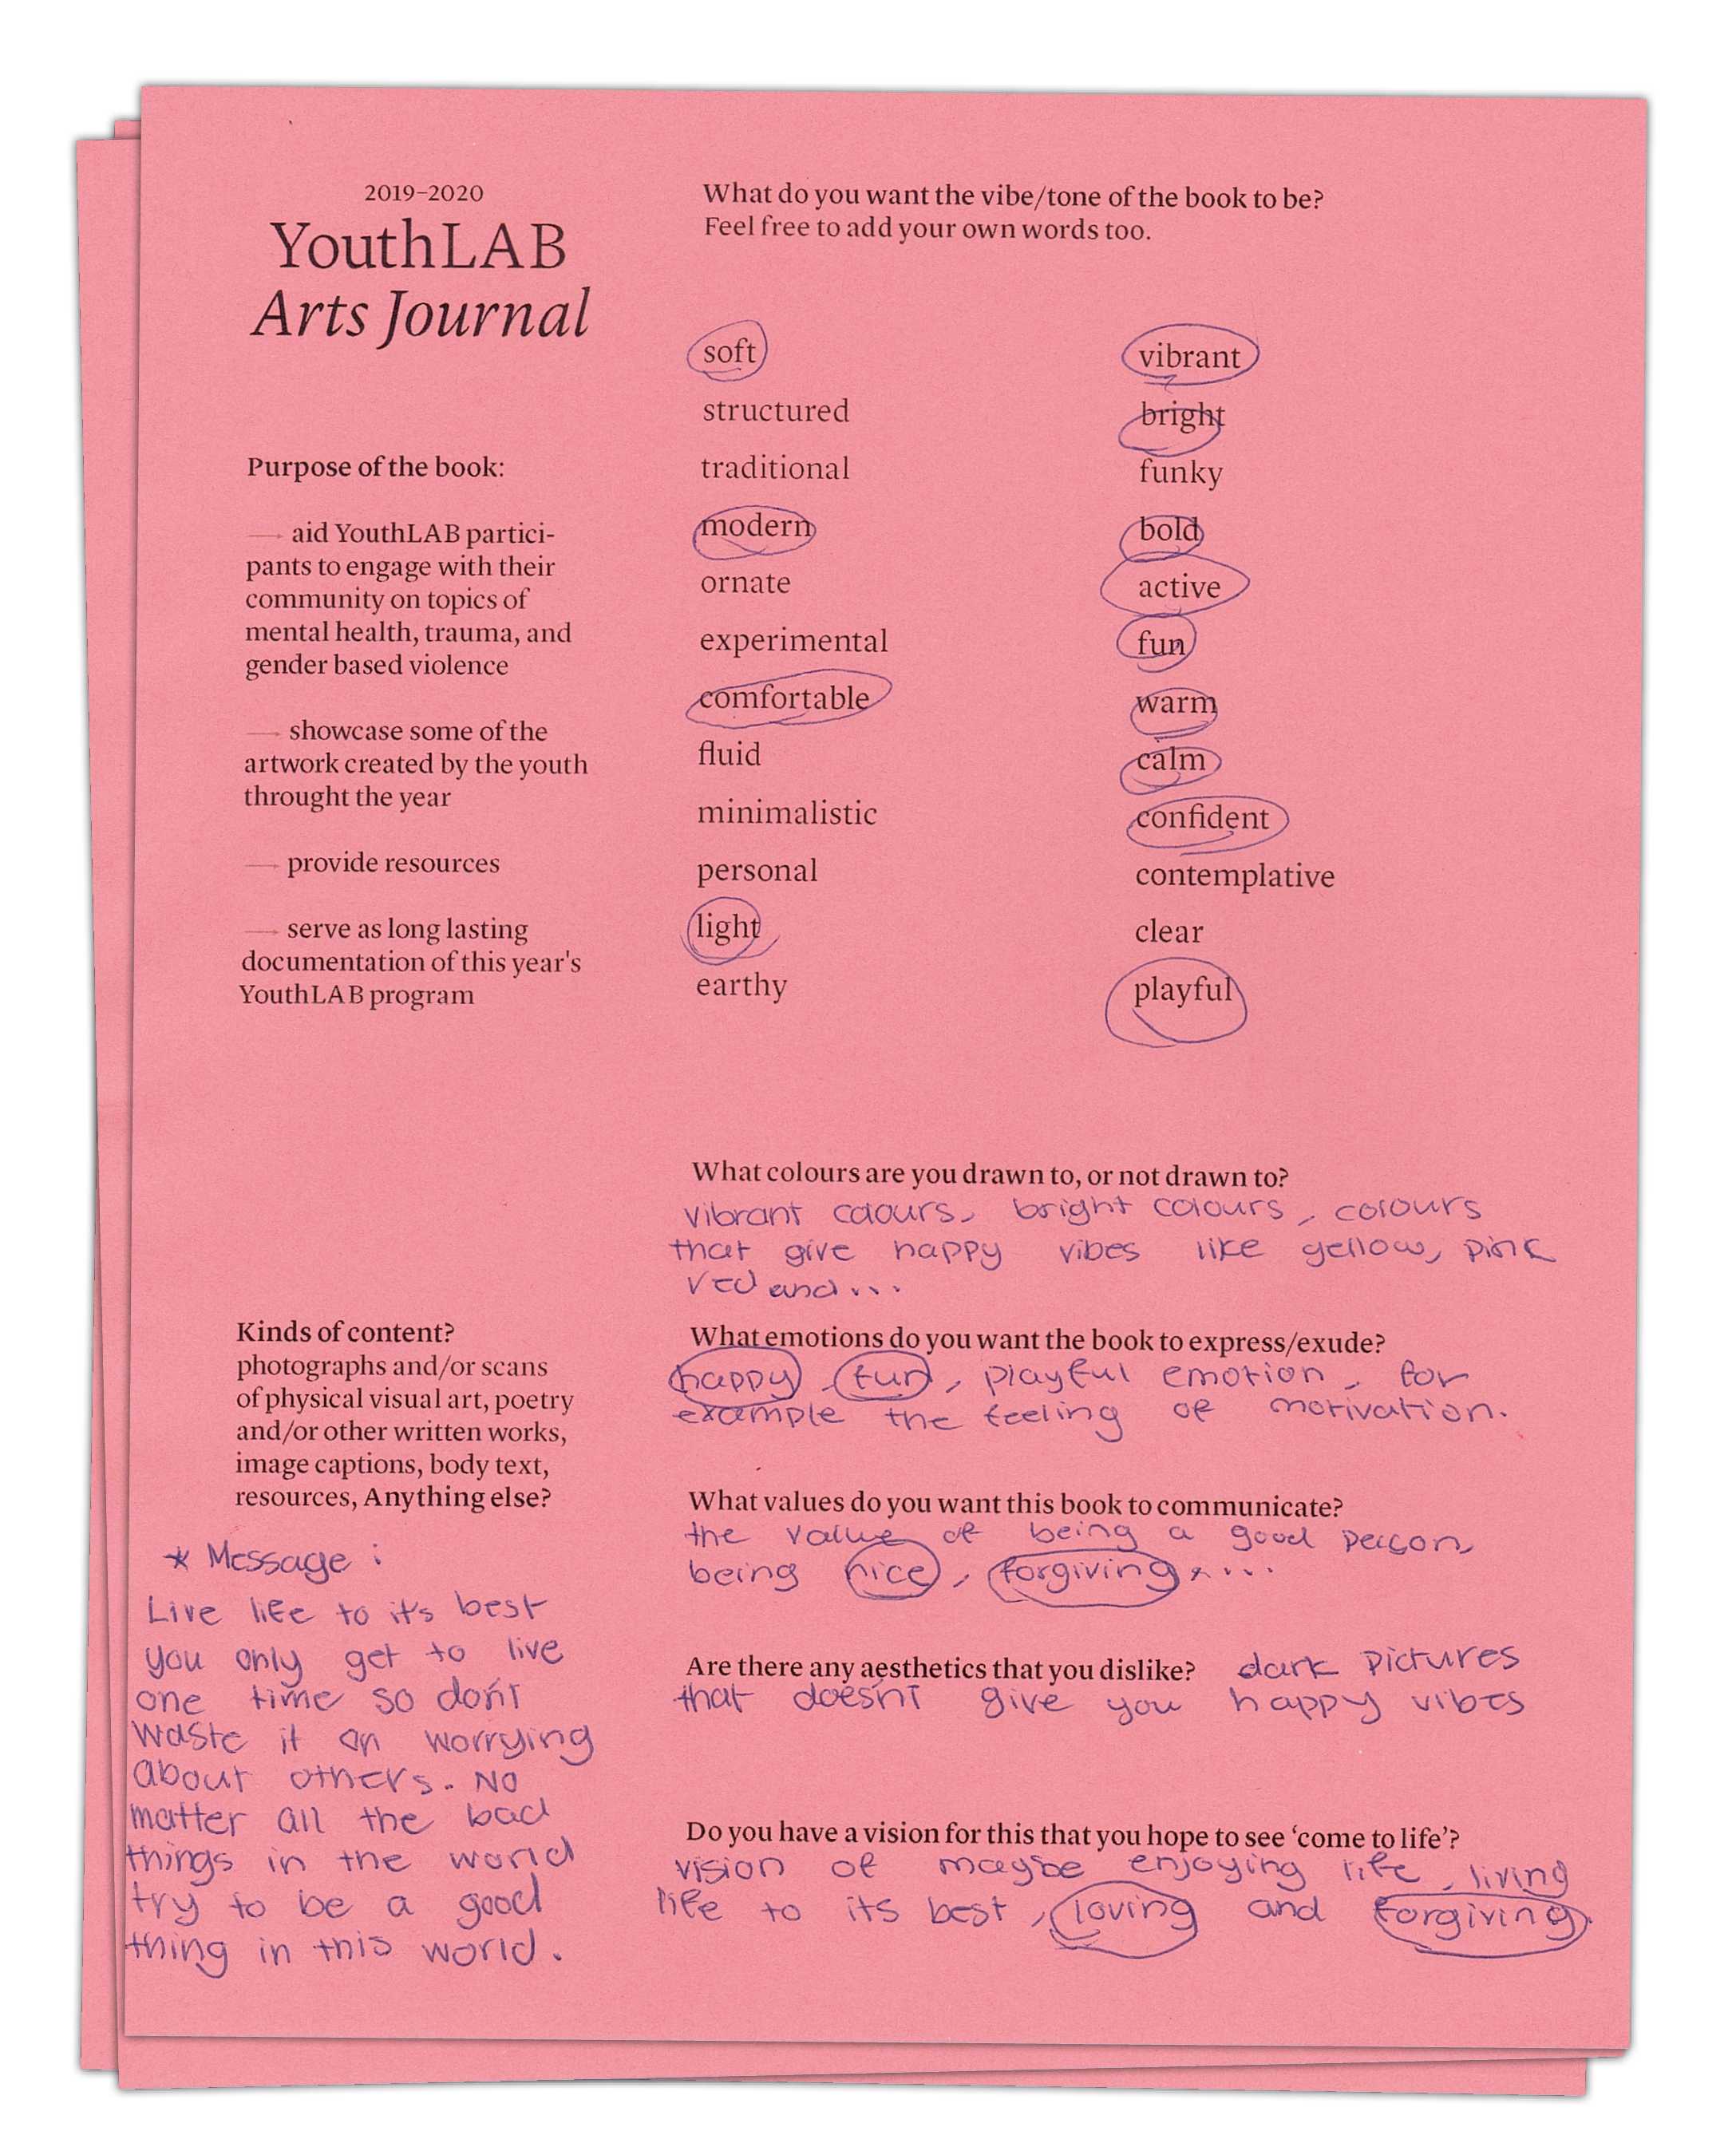 2019–2020
YouthLAB
Arts Journal
Purpose of the book:
— aid YouthLAB partici-
pants to engage with their
community on topics of
mental health, trauma, and
gender based violence
— showcase some of the
artwork created by the youth
throught the year
— provide resources
— serve as long lasting
documentation of this year's
YouthLAB program
Kinds of content?
photographs and/or scans
of physical visual art, poetry
and/or other written works,
image captions, body text,
resources, Anything else?
* Message :
Live life to it's best
you only get to live
one time so don't
waste it on worrying
about others. No
matter all the bad
things in the world
try to be a good
thing in this world.
What do you want the vibe/tone of the book to be?
Feel free to add your own words too.
soft
structured
traditional
modern
ornate
experimental
comfortable
fluid
minimalistic
personal
light
earthy
vibrant
bright
funky
bold
active
fun
warm
calm
confident
contemplative
clear
playful
What colours are you drawn to, or not drawn to?
vibrant colours, bright colours, colours
that give happy vibes like yellow, pink
red and...
What emotions do you want the book to express/exude?
happy, fun, playful emotion, for
example the feeling of motivation.
What values do you want this book to communicate?
the value of being a good person,
being nice, forgiving, ...
Are there any aesthetics that you dislike? dark pictures
that doesn't give you happy vibes
Do you have a vision for this that you hope to see ‘come to life’?
vision of maybe enjoying life, living
life to its best, loving and forgiving.